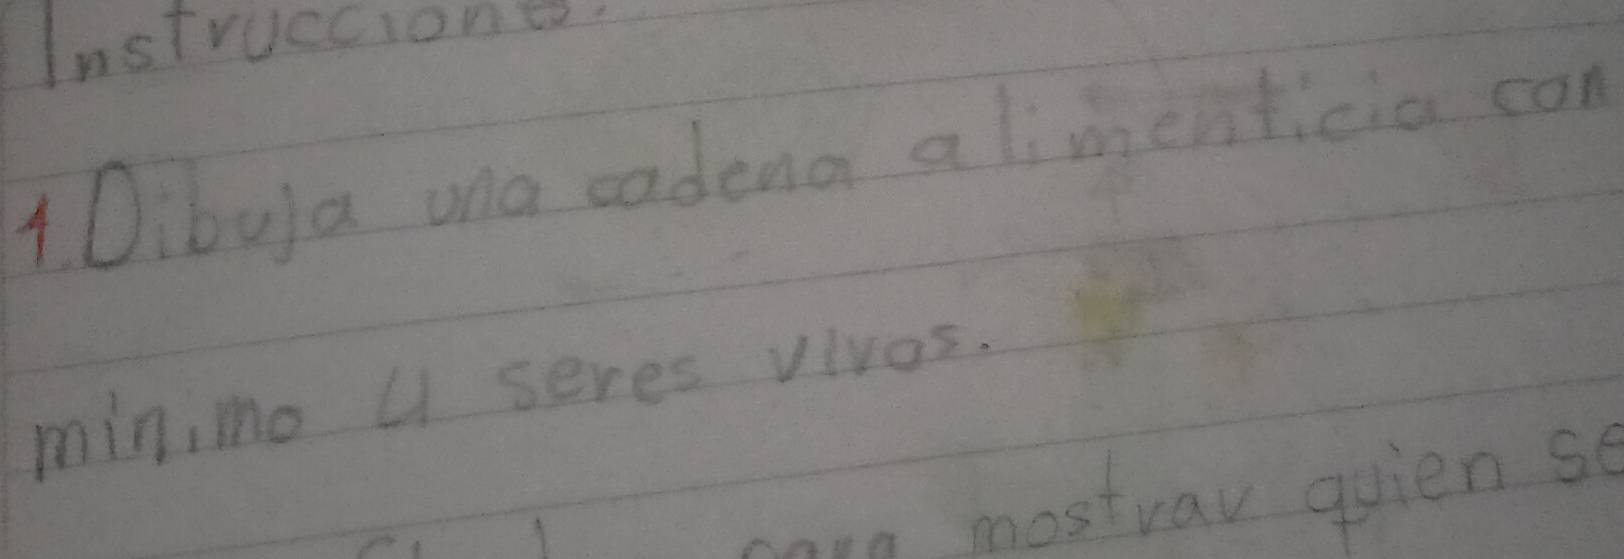 Instrucciones.
1. Dibuja una cadena alimenticia con
minimo 4 seres vivos.
para mostrar quien se